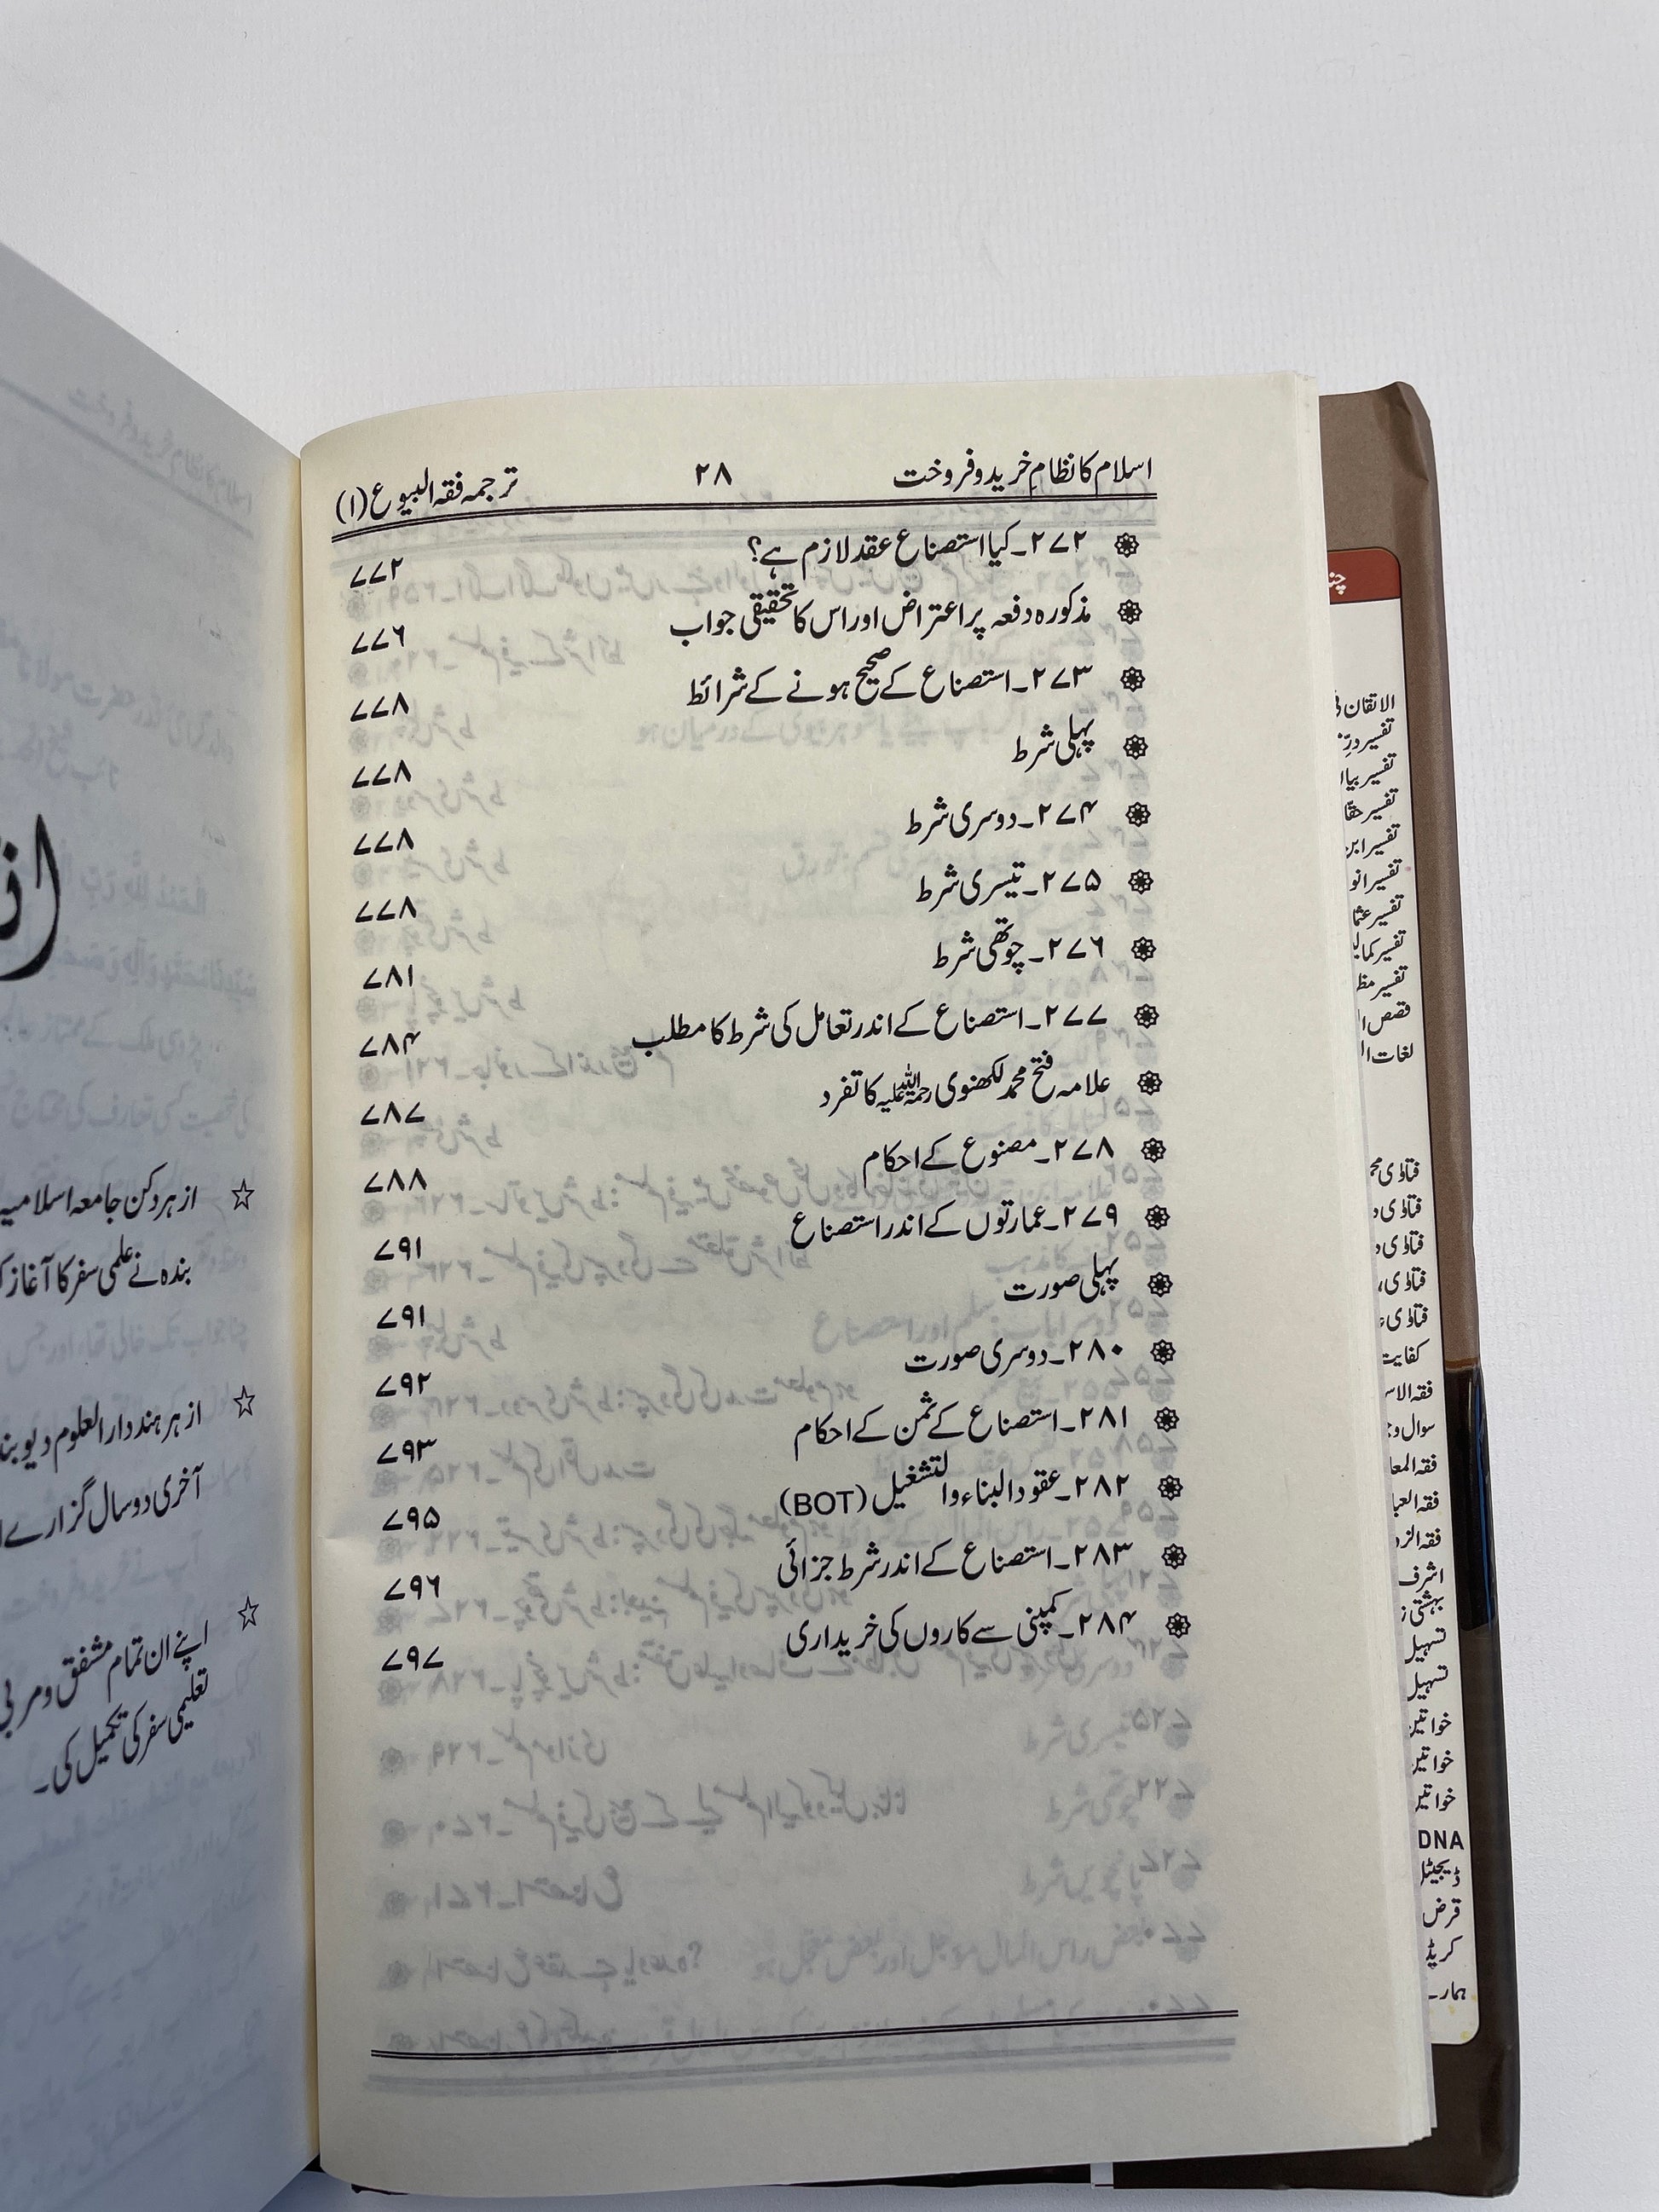 اسلام کا نظامِ خرید و فروخت ۲۸ ترجمہ فقہ البیوع (۱)
۲۷۲۔ کیا استصناع عقد لازم ہے؟ ۷۷۲
مذکورہ دفعہ پر اعتراض اور اس کا تحقیقی جواب ۷۷۶
۲۷۳۔ استصناع کے صحیح ہونے کے شرائط ۷۷۸
پہلی شرط ۷۷۸
۲۷۴۔ دوسری شرط ۷۷۸
۲۷۵۔ تیسری شرط ۷۷۸
۲۷۶۔ چوتھی شرط ۷۸۱
۲۷۷۔ استصناع کے اندر تعامل کی شرط کا مطلب ۷۸۴
علامہ فتح محمد لکھنوی رحمۃ اللہ علیہ کا تفرد ۷۸۷
۲۷۸۔ مصنوع کے احکام ۷۸۸
۲۷۹۔ عمارتوں کے اندر استصناع ۷۹۱
پہلی صورت ۷۹۱
۲۸۰۔ دوسری صورت ۷۹۲
۲۸۱۔ استصناع کے ثمن کے احکام ۷۹۳
۲۸۲۔ عقود البناء والتشغیل (BOT) ۷۹۵
۲۸۳۔ استصناع کے اندر شرط جزائی ۷۹۶
۲۸۴۔ کمپنی سے کاروں کی خریداری ۷۹۷
☆ از ہر دکن جامعہ اسلامیہ
بندہ نے علمی سفر کا آغاز
☆ از ہر ہند دار العلوم دیوبند
آخری دو سال گزارے
☆ اپنے ان تمام مشفق و مربی
تعلیمی سفر کی تکمیل کی۔
الاتقان
تفسیر
تفسیر
تفسیر
تفسیر
تفسیر
تفسیر
تفسیر
تفسیر
قصص
لغات
فتاوی
فتاوی
فتاوی
فتاوی
فتاوی
کفایت
سوال و
اشرف
بہشتی
تسہیل
تسہیل
خواتین
خواتین
خواتین
DNA
ڈیجیٹل
قرض